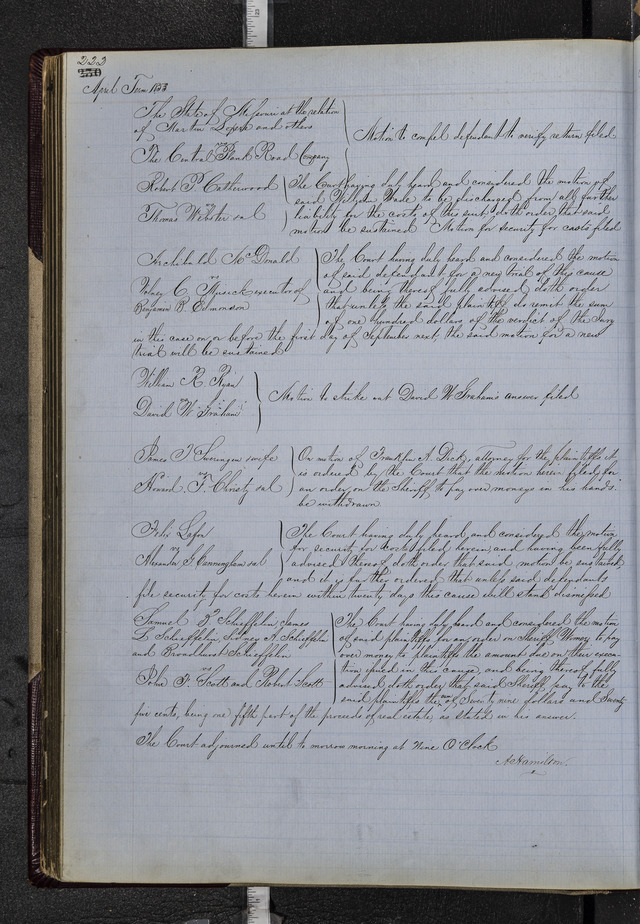 222
April Term 1853
The State of Missouri at the relation
of Martin and others
vs
The Central Plank Road Company
Motion to compel defendant to verify return filed
Robert P. Catlerwood
vs
Thomas Webster et al
The Court having duly heard and considered the motion of
said William Wade to be discharged from all further
liability for the costs of this suit doth order that said
motion be sustained. Motion for security for costs filed
Archibald McDonald
vs
C. Music executor of
Benjamin B. Edmonson
The Court having duly heard and considered the motion
of said defendant for a new trial of this cause
and being thereof fully advised doth order
that unless the said plaintiff do remit the sum
of one hundred dollars of the verdict of the Jury
in this case on or before the first day of September next, the said motion for a new
trial will be sustained
William R. Ryan
vs
David W. Graham
Motion to strike out David W. Graham's answer filed
James T. Swearingen & wife
vs
Howard F. Christy et al
On motion of Franklin A. Dick, attorney for the plaintiffs it
is ordered by the Court that the motion herein filed for
an order on the Sheriff to pay over moneys in his hands
be withdrawn
Felix
vs
Alexander J. Cunningham et al
The Court having duly heard and considered the motion
for security for costs filed herein and having been fully
advised thereof doth order that said motion be sustained
and it is further ordered that unless said defendants
file security for costs herein within twenty days this cause will stand dismissed
Samuel B. Schieffelin, James
L. Schieffelin, Sidney A. Schieffelin
and Bradhurst Schieffelin
vs
John F. Scott and Robert Scott
The Court having duly heard and considered the motion
of said plaintiffs for an order on Sheriff to pay
over money to plaintiffs the amount due on their execu-
tion issued in this cause, and being thereof fully
advised doth order that said Sheriff pay to the
said plaintiffs the sum of Seventy nine dollars and Seventy
five cents, being one fifth part of the proceeds of real estate, as stated in his answer.
The Court adjourned until to morrow morning at Nine O'Clock
A Hamilton.